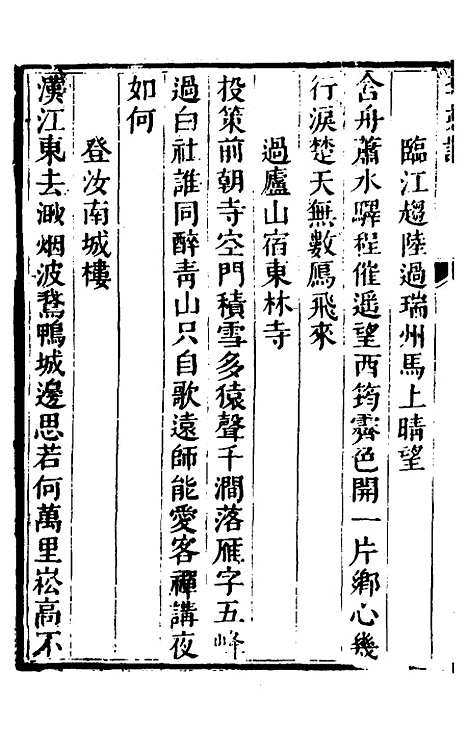 臨江趨陸過瑞州馬上晴望
舍舟蕭水驛程催遥望西筠霽色開一片鄉心幾
行淚楚天無數鴈飛來
過廬山宿東林寺
投策前朝寺空門積雪多猿聲千澗落雁字五峰
過白社誰同醉靑山只自歌遠師能愛客禪講夜
如何
登汝南城樓
漢江東去渺烟波鵞鴨城邊思若何萬里崧高不